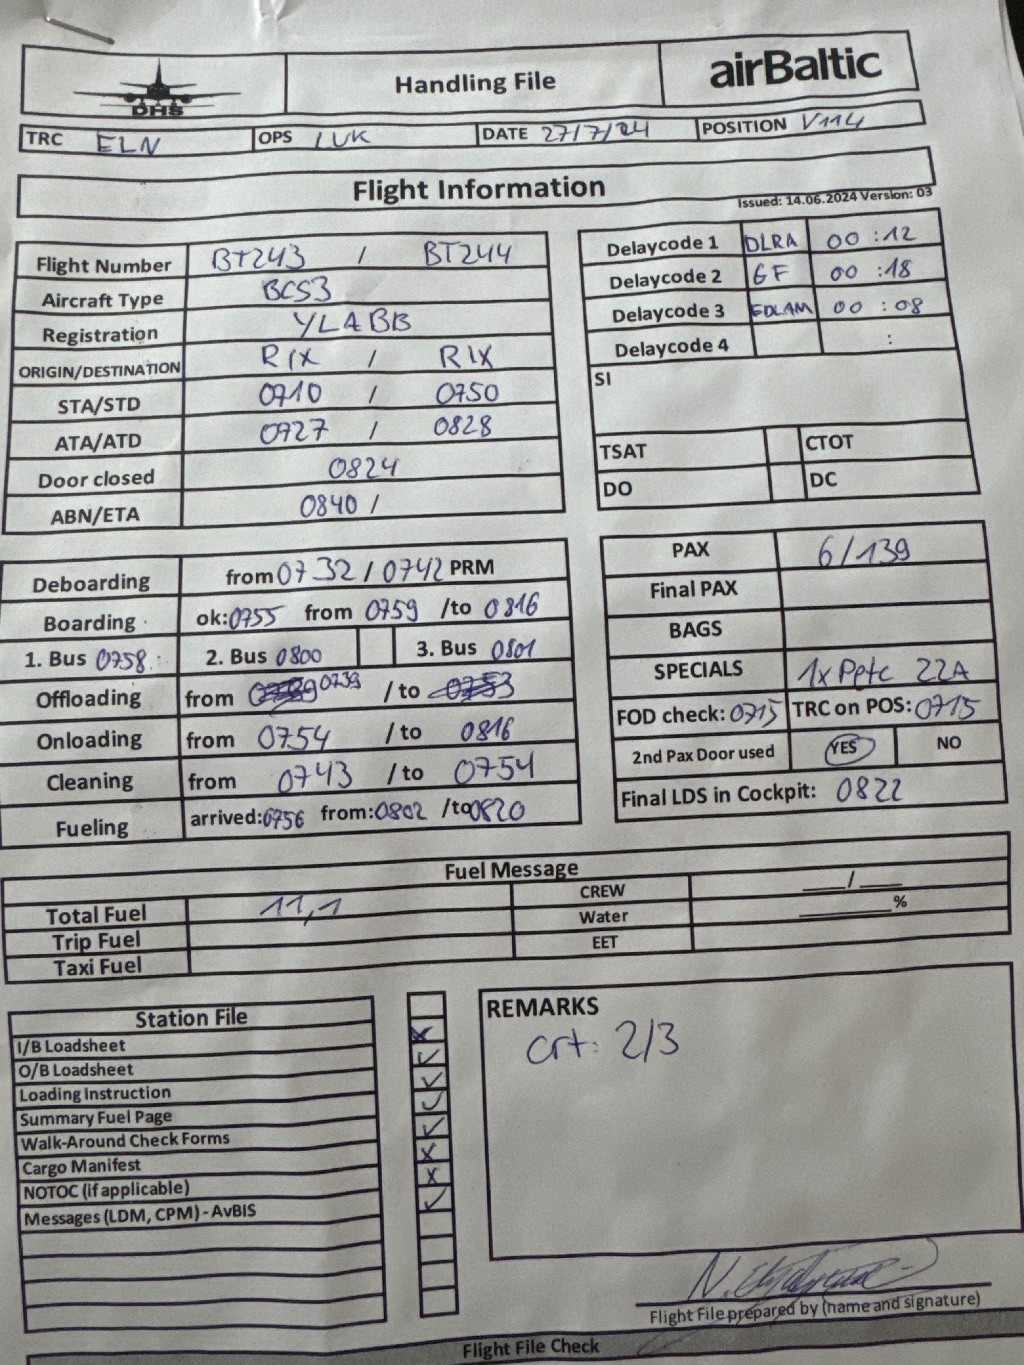 DHS Handling File airBaltic
TRC ELN OPS LUK DATE 27/7/24 POSITION V114
Flight Information
Issued: 14.06.2024 Version: 03
Flight Number BT243 / BT244
Aircraft Type BCS3
Registration YLABB
ORIGIN/DESTINATION RIX / RIX
STA/STD 0710 / 0750
ATA/ATD 0727 / 0828
Door closed 0824
ABN/ETA 0840 /
Delaycode 1 DLRA 00 :12
Delaycode 2 GF 00 :18
Delaycode 3 EDLAM 00 : 08
Delaycode 4 :
SI
TSAT CTOT
DO DC
Deboarding from 0732 / 0742 PRM
Boarding ok: 0755 from 0759 /to 0816
1. Bus 0758 2. Bus 0800 3. Bus 0801
Offloading from 0739 / to 0753
Onloading from 0754 / to 0816
Cleaning from 0743 / to 0754
Fueling arrived: 0756 from: 0802 /to 0820
PAX 6/139
Final PAX
BAGS
SPECIALS 1x Petc 22A
FOD check: 0715 TRC on POS: 0715
2nd Pax Door used YES NO
Final LDS in Cockpit: 0822
Fuel Message
Total Fuel 11,1 CREW ___/___
Trip Fuel Water ______%
Taxi Fuel EET
Station File
I/B Loadsheet
O/B Loadsheet
Loading Instruction
Summary Fuel Page
Walk-Around Check Forms
Cargo Manifest
NOTOC (if applicable)
Messages (LDM, CPM) - AvBIS
REMARKS
Crt: 2/3
N.
Flight File prepared by (name and signature)
Flight File Check